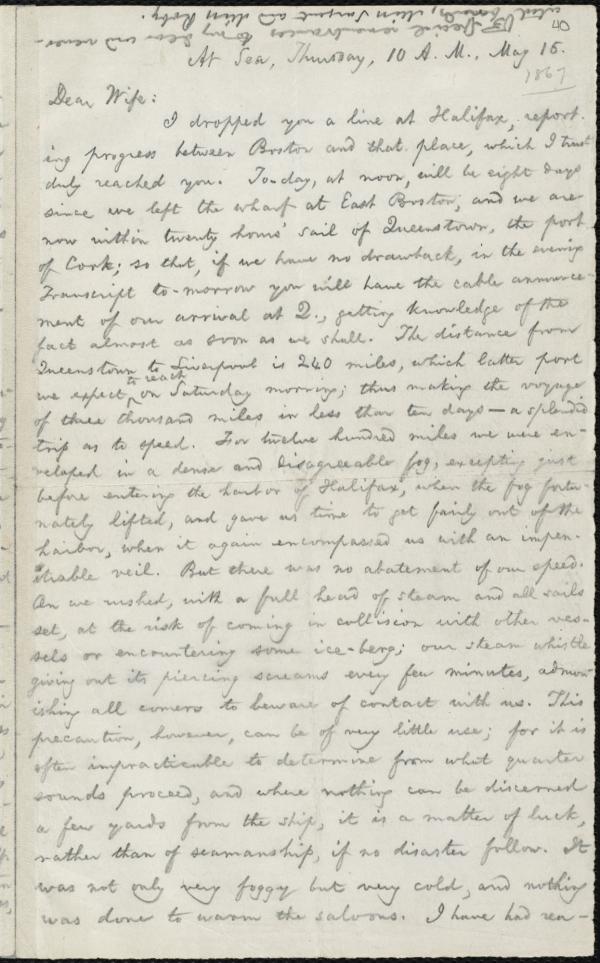 Special remembrances to my dear and vener-
ated
At Sea, Thursday, 10 A. M., May 16.
1867
Dear Wife:
I dropped you a line at Halifax, report-
ing progress between Boston and that place, which I trust
duly reached you. To-day, at noon, will be eight days
since we left the wharf at East Boston, and we are
now within twenty hours' sail of Queenstown, the port
of Cork; so that, if we have no drawback, in the evening
Transcript to-morrow you will have the cable announce-
ment of our arrival at Q., getting knowledge of the
fact almost as soon as we shall. The distance from
Queenstown to Liverpool is 240 miles, which latter port
we expect to reach on Saturday morning; thus making the voyage
of three thousand miles in less than ten days — a splendid
trip as to speed. For twelve hundred miles we were en-
veloped in a dense and disagreeable fog, excepting just
before entering the harbor of Halifax, when the fog fortu-
nately lifted, and gave us time to get fairly out of the
harbor, when it again encompassed us with an impen-
etrable veil. But there was no abatement of our speed.
On we rushed, with a full head of steam and all sails
set, at the risk of coming in collision with other ves-
sels or encountering some ice-berg; our steam whistle
giving out its piercing screams every few minutes, admon-
ishing all comers to beware of contact with us. This
precaution, however, can be of very little use; for it is
often impracticable to determine from what quarter
sounds proceed, and where nothing can be discerned
a few yards from the ship, it is a matter of luck,
rather than of seamanship, if no disaster follow. It
was not only very foggy but very cold, and nothing
was done to warm the saloons. I have had rea-